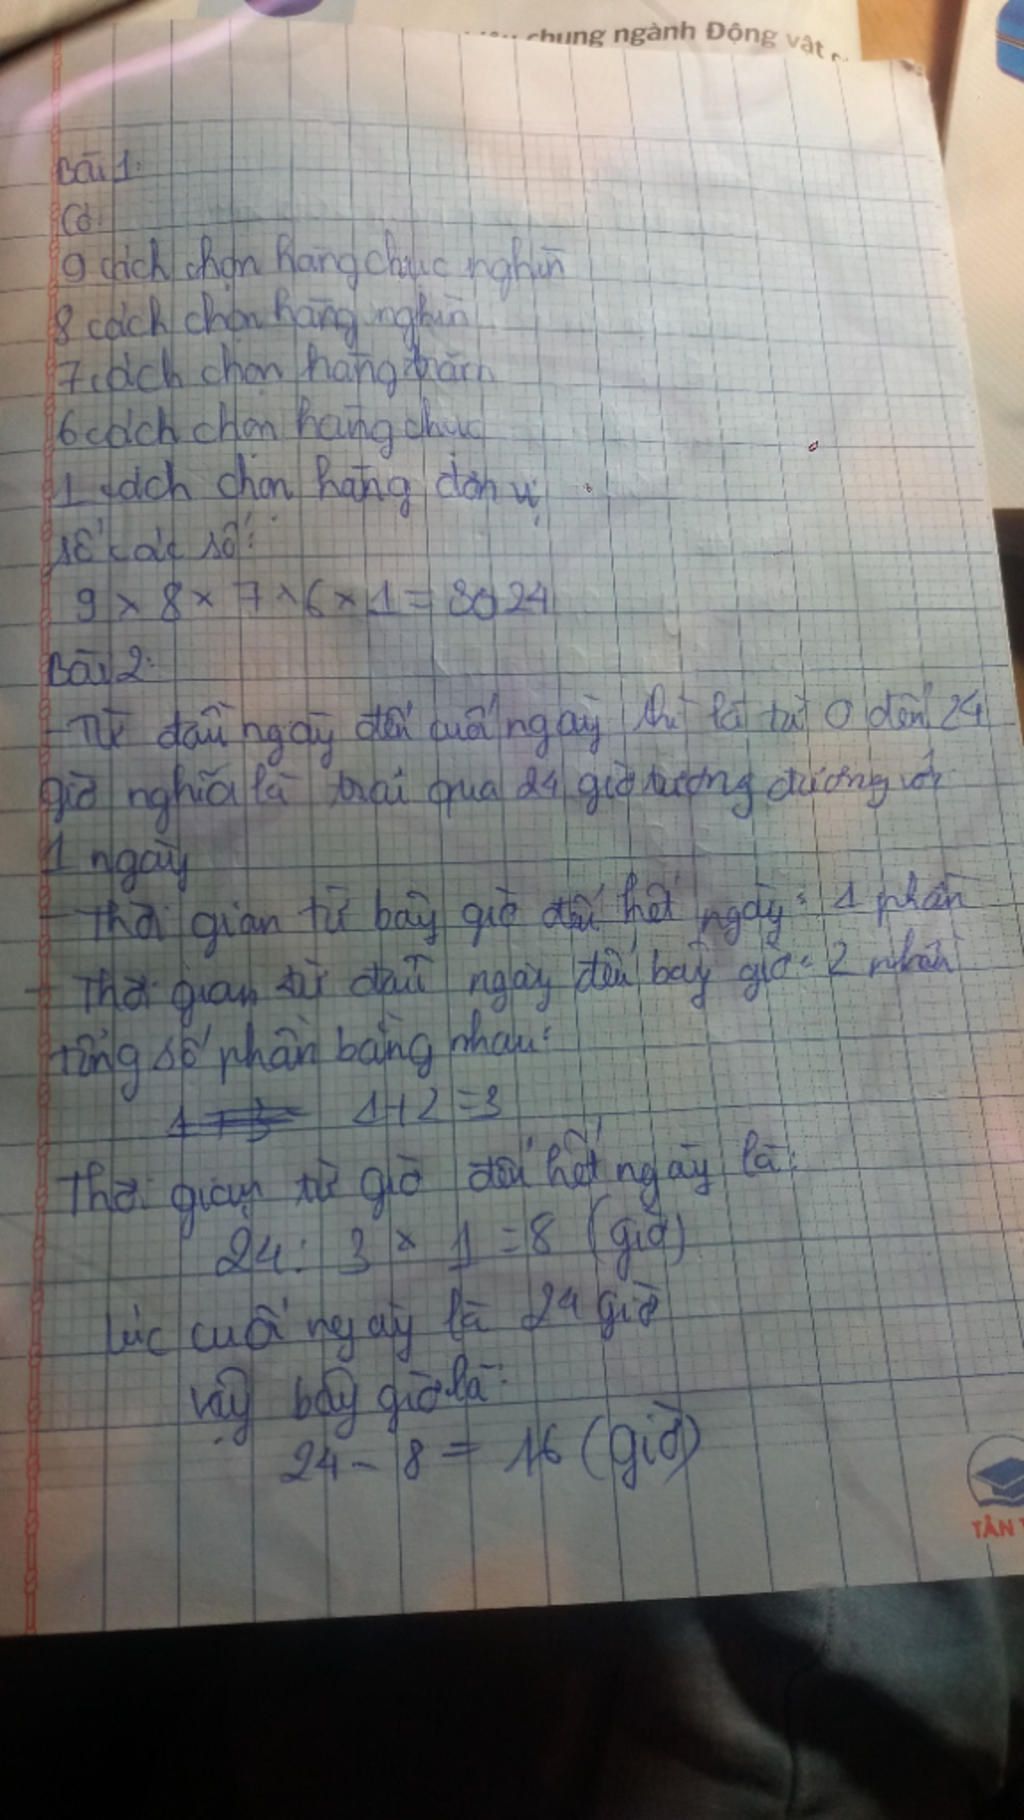 chung ngành Động vật
Bài 1:
Có:
9 cách chọn hàng chục nghìn
8 cách chọn hàng nghìn
7 cách chọn hàng trăm
6 cách chọn hàng chục
1 cách chọn hàng đơn vị
số các số:
9 x 8 x 7 x 6 x 1 = 3024
Bài 2:
- Từ đầu ngày đến cuối ngày thì là từ 0 đến 24
giờ nghĩa là trải qua 24 giờ tương đương với
1 ngày
- Thời gian từ bây giờ đến hết ngày: 1 phần
- Thời gian từ đầu ngày đến bây giờ: 2 phần
Tổng số phần bằng nhau:
1+2=3
Thời gian từ giờ đến hết ngày là:
24 : 3 x 1 = 8 (giờ)
Lúc cuối ngày là 24 giờ
Vậy bây giờ là:
24 - 8 = 16 (giờ)
TÂN